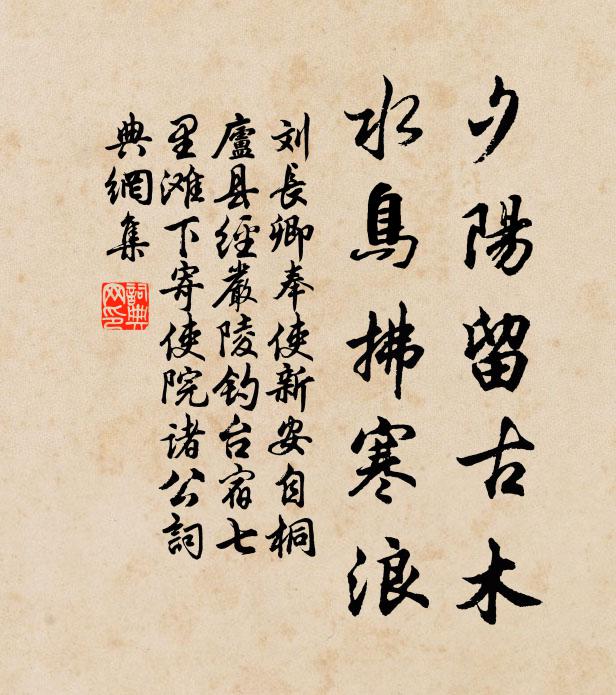 夕陽留古木
水鳥拂寒浪
刘長卿奉使新安自桐
廬县經嚴陵钓台宿七
里滩下寄使院诸公詞
典網集
詞典
网印